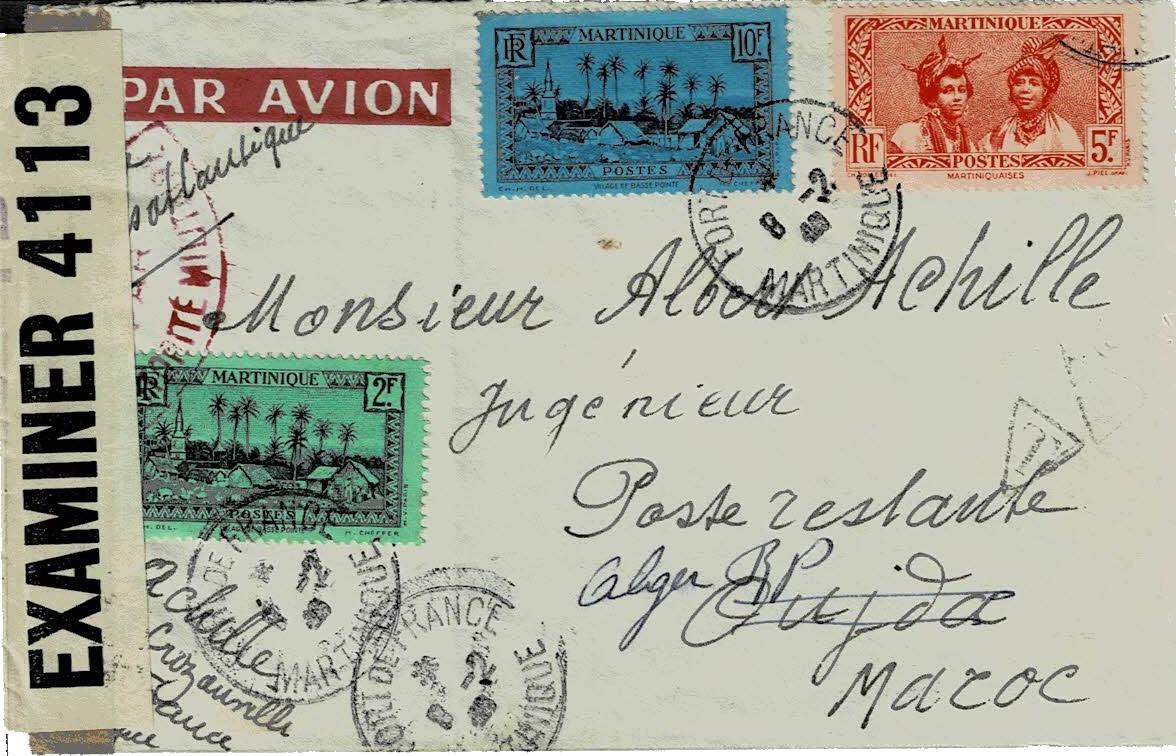 EXAMINER 4113
PAR AVION
MARTINIQUE
RF
10F.
POSTES
VILLAGE DE BASSE POINTE
MARTINIQUE
RF
POSTES
5F.
MARTINIQUAISES
ORITÉ MILIT
FORT DE FRANCE
8 -2
MARTINIQUE
Monsieur Albert Achille
Ingénieur
Poste restante
Alger BP
Oujda
Maroc
T
MARTINIQUE
RF
2F.
POSTES
H. CHEFFER
DE FRANCE
-2
MARTINIQUE
Achille
FORT DE FRANCE
8 -2